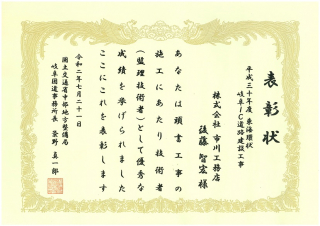 表彰状
平成三十年度 東海環状
岐阜IC道路建設工事
株式会社 市川工務店
後藤 智宏 様
あなたは頭書工事の
施工にあたり技術者
(監理技術者)として優秀な
成績を挙げられました
ここにこれを表彰します
令和二年七月二十一日
国土交通省中部地方整備局
岐阜国道事務所長 粟野 真一郎